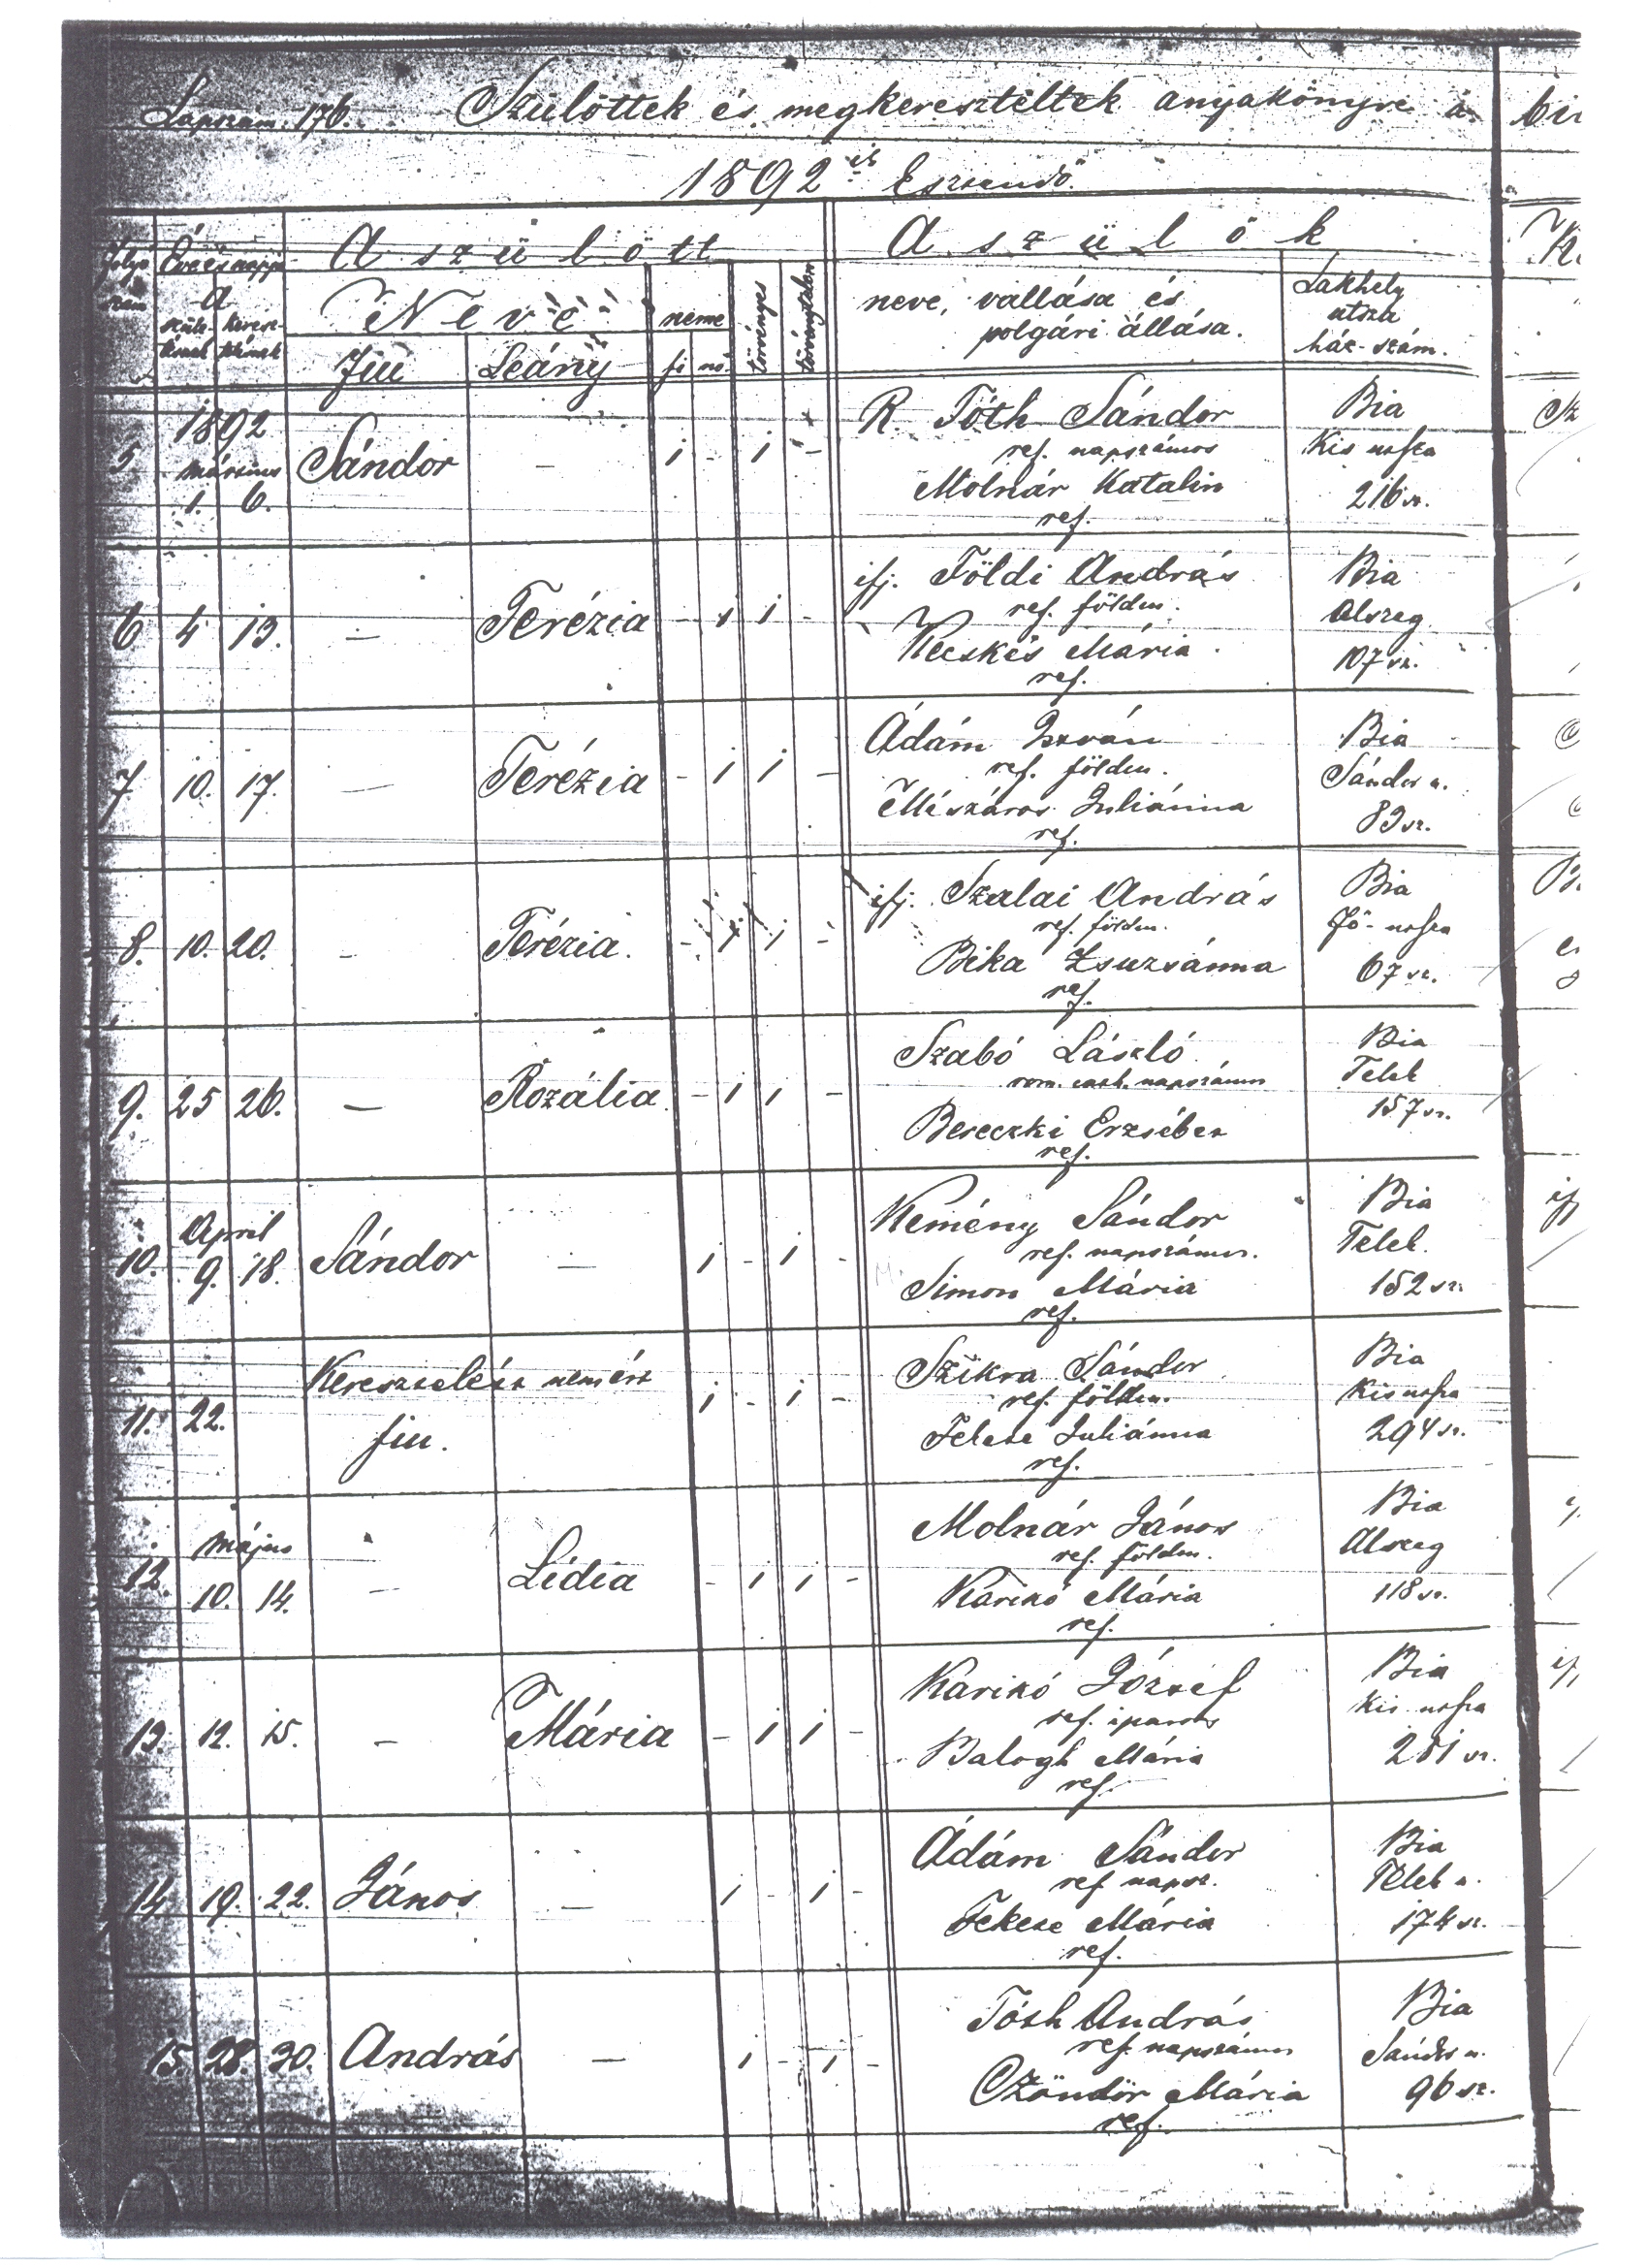 Lapszám. 176. Szülöttek és megkereszteltek anyakönyve
1892 ik Esztendő.
folyó szám
Éve és napja
a
szüle- kereszt-
tésnek telésnek
A szülött
Neve
Fiú Leány
neme
fi nő
törvényes
törvénytelen
A szülők
neve, vallása és
polgári állása.
Lakhely
utsza
ház-szám.
5 1892 március 1. 6. Sándor — 1 - 1 -
R. Tóth Sándor
ref. napszámos
Molnár Katalin
ref.
Bia
Kis utsza
216 sz.
6 4 13. — Terézia - 1 1 -
ifj. Földi András
ref. földm.
Kecskés Mária
ref.
Bia
Alszeg
107 sz.
7 10. 17. — Terézia - 1 1 -
Ádám István
ref. földm.
Mészáros Juliánna
ref.
Bia
Sándor u.
89 sz.
8. 10. 20. - Terézia. - 1 1 -
ifj. Szalai András
ref. földm.
Bika Zsuzsánna
ref.
Bia
Fő-utsza
67 sz.
9. 25 26. — Rozália - 1 1 -
Szabó László
rom. cath. napszámos
Bereczki Erzsébet
ref.
Bia
Telek
157 sz.
10. April 9. 18. Sándor — 1 - 1 -
Kemény Sándor
ref. napszámos.
Simon Mária
ref.
Bia
Telek.
152 sz.
11. 22. Keresztelést nem ért
fiu.
1 - 1 -
Szikra Sándor
ref. földm.
Fekete Juliánna
ref.
Bia
Kis utsza
294 sz.
12. május 10. 14. — Lidia - 1 1 -
Molnár János
ref. földm.
Karikó Mária
ref.
Bia
Alszeg
118 sz.
13. 12. 15. — Mária - 1 1 -
Karikó József
ref. iparos
Balogh Mária
ref.
Bia
Kis utsza
281 sz.
14 19. 22. János — 1 - 1 -
Ádám Sándor
ref. napsz.
Fekete Mária
ref.
Bia
Telek u.
174 sz.
15. 28. 30. András — 1 - 1 -
Tóth András
ref. napszámos
Czöndör Mária
ref.
Bia
Sándor u.
96 sz.